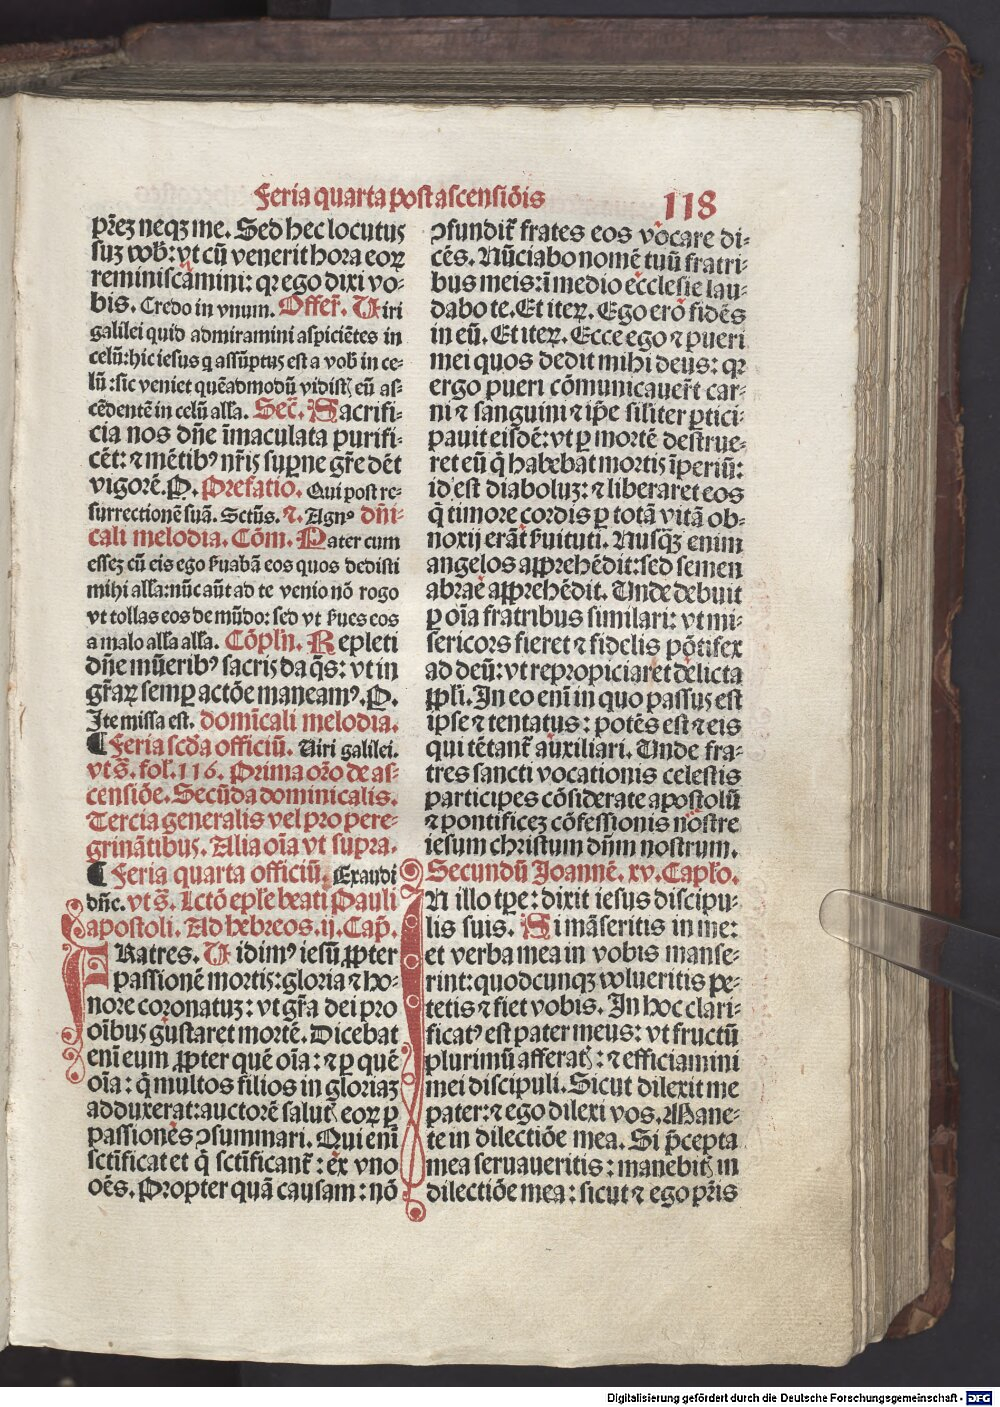 Feria quarta post ascensiōis 118
pr̄ez neqz me. Sed hec locutus
suz vob̄: vt cū venerit hora eoꝝ
reminiscamini: qꝛ ego dixi vo-
bis. Credo in vnum. Offer̄. Uiri
galilei quid admiramini aspiciētes in
celū: hic iesus q assūptuz est a vob̄ in ce-
lū: sic veniet quēadmodū vidistꝭ eū as-
cēdentē in celū alla. Sec̄. Sacrifi-
cia nos dn̄e īmaculata purifi-
cēt: ⁊ mētibꝰ nr̄is suꝑne gr̄e dēt
vigorē. P. Prefatio. Qui post re-
surrectionē suā. Sctūs. ⁊. Agnꝰ dn̄i-
cali melodia. Cōm. Pater cum
essez cū eis ego ẜuabā eos quos dedisti
mihi alla: nūc aūt ad te venio nō rogo
vt tollas eos de mūdo: sed vt ẜues eos
a malo alla alla. Cōpln̄. Repleti
dn̄e mūeribꝰ sacris da q̄s: vt in
gr̄aꝝ semꝑ actōe maneamꝰ. P.
Ite missa est. domīcali melodia.
¶ Feria scd̄a officiū. Uiri galilei.
vt s̄. fol. 116. Prima or̄o de as-
censiōe. Secūda dominicalis.
Tercia generalis vel pro pere-
grinātibus. Alia oīa vt supra.
¶ Feria quarta officiū. Exaudi
dn̄e. vt s̄. Lctō epl̄e beati Pauli
apostoli. Ad hebreos. ij. Cap̄.
FRatres. Uidimꝰ iesū ꝓpter
passionē mortis: gloria ⁊ ho-
nore coronatuz: vt gr̄a dei pro
oībus gustaret mortē. Dicebat
enī eum ꝓpter quē oīa: ⁊ ꝑ quē
oīa: q̄ multos filios in gloriaz
adduxerat: auctorē salutꝭ eoꝝ ꝑ
passiones ꝯsummari. Qui enī
sctīficat et q̄ sctīficant̄: ex vno
oēs. Propter quā causam: nō
ꝯfundit̄ frates eos vocare di-
cēs. Nūciabo nomē tuū fratri-
bus meis: ī medio ecclesie lau-
dabo te. Et iteꝝ. Ego erō fidēs
in eū. Et iteꝝ. Ecce ego ⁊ pueri
mei quos dedit mihi deus: qꝛ
ergo pueri cōmunicauer̄t car-
ni ⁊ sanguini ⁊ ip̄e siliter ꝑtici-
pauit eisdē: vt ꝑ mortē destrue-
ret eū q̄ habebat mortis īperiū:
id est diaboluz: ⁊ liberaret eos
q̄ timore cordis ꝑ totā vitā ob-
noxij erāt ẜuituti. Nusq̄z enim
angelos apprehēdit: sed semen
abrae apprehēdit. Unde debuit
ꝑ oīa fratribus similari: vt mi-
sericors fieret ⁊ fidelis pōtifex
ad deū: vt repropiciaret delicta
ppl̄i. In eo enī in quo passus est
ipse ⁊ tentatus: potēs est ⁊ eis
qui tētant̄ auxiliari. Unde fra-
tres sancti vocationis celestis
participes cōsiderate apostolū
⁊ pontificez cōfessionis nostre
iesum christum dn̄m nostrum.
Secundū Joannē. xv. Capl̄o.
IN illo tꝑe: dixit iesus discipu-
lis suis. Si māseritis in me:
et verba mea in vobis manse-
rint: quodcunqz volueritis pe-
tetis ⁊ fiet vobis. In hoc clari-
ficatꝰ est pater meus: vt fructū
plurimū afferatꝭ: ⁊ efficiamini
mei discipuli. Sicut dilexit me
pater: ⁊ ego dilexi vos. Mane-
te in dilectiōe mea. Si p̄cepta
mea seruaueritis: manebitꝭ in
dilectiōe mea: sicut ⁊ ego pr̄is
Digitalisierung gefördert durch die Deutsche Forschungsgemeinschaft - DFG